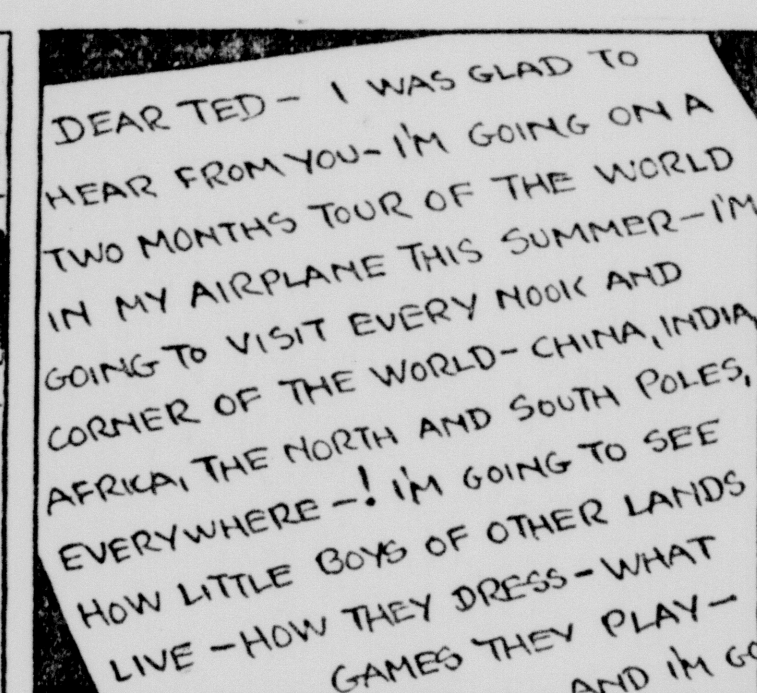 DEAR TED - I WAS GLAD TO
HEAR FROM YOU - I'M GOING ON A
TWO MONTHS TOUR OF THE WORLD
IN MY AIRPLANE THIS SUMMER - I'M
GOING TO VISIT EVERY NOOK AND
CORNER OF THE WORLD - CHINA, INDIA,
AFRICA, THE NORTH AND SOUTH POLES,
EVERYWHERE -! I'M GOING TO SEE
HOW LITTLE BOYS OF OTHER LANDS
LIVE - HOW THEY DRESS - WHAT
GAMES THEY PLAY -
AND I'M